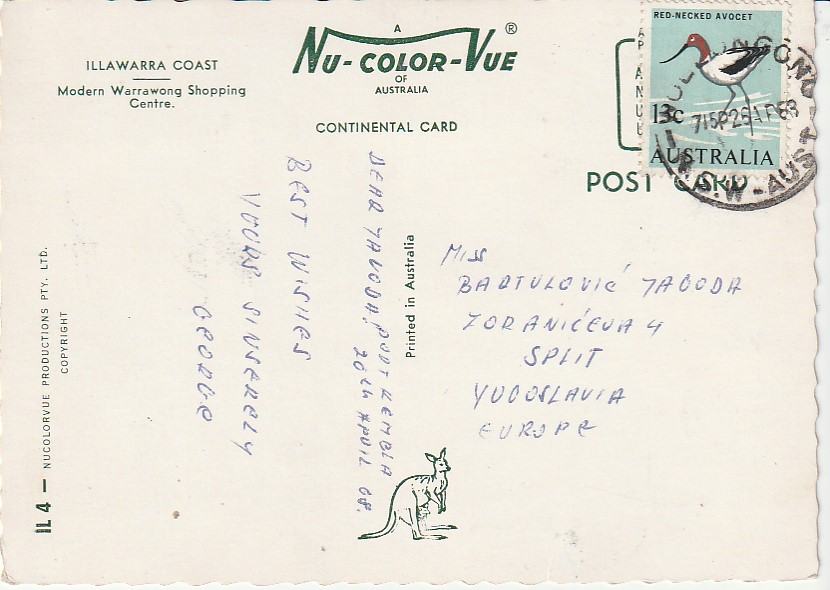 ILLAWARRA COAST
Modern Warrawong Shopping
Centre.
A
NU-COLOR-VUE ®
OF
AUSTRALIA
CONTINENTAL CARD
RED-NECKED AVOCET
13c
AUSTRALIA
WOLLONGONG
715P 26AP68
N.S.W-AUST
POST CARD
DEAR JAGODA!
PORT KEMBLA
26th APRIL 68.
BEST WISHES
YOURS SINSERELY
GEORGE
Printed in Australia
Miss
BARTULOVIĆ JAGODA
ZORANIĆEVA 4
SPLIT
YUGOSLAVIA
EUROPE
IL4 — NUCOLORVUE PRODUCTIONS PTY. LTD.
COPYRIGHT